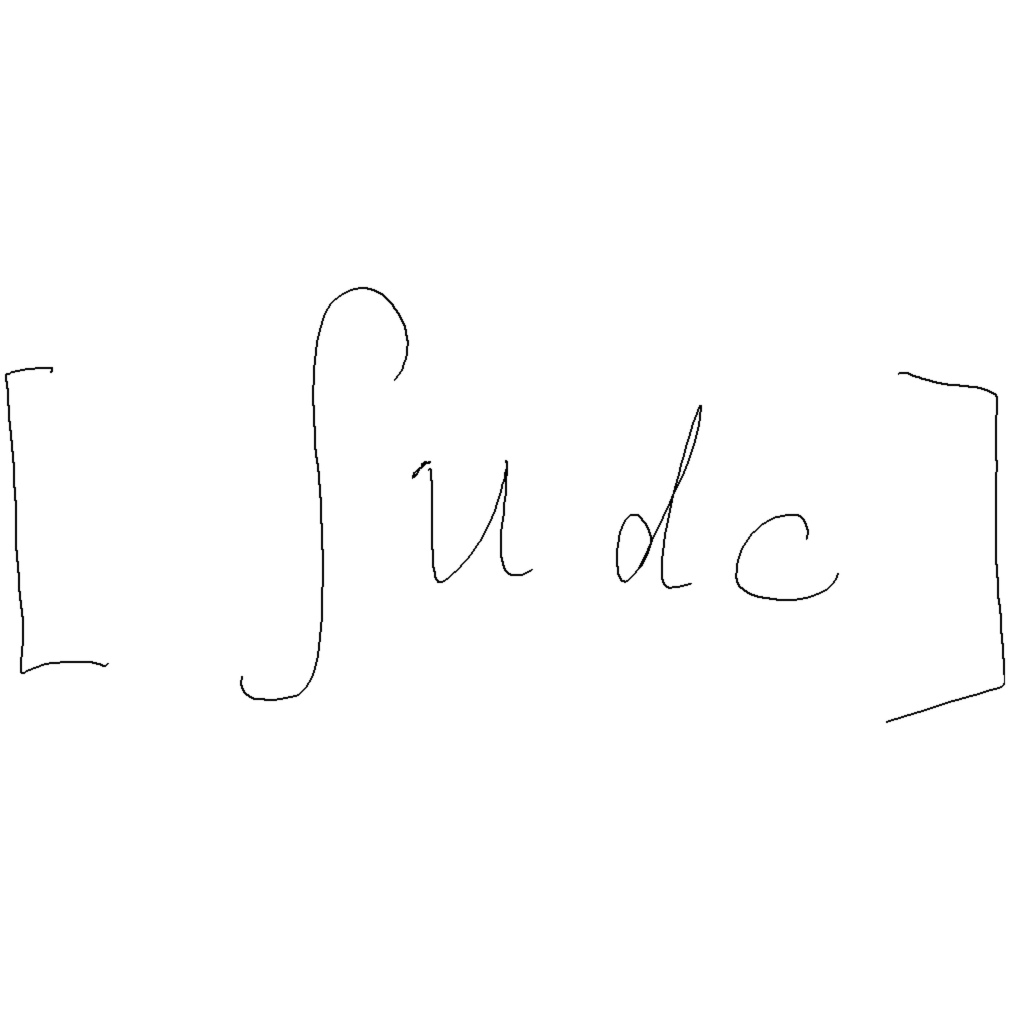 [∫u dc]